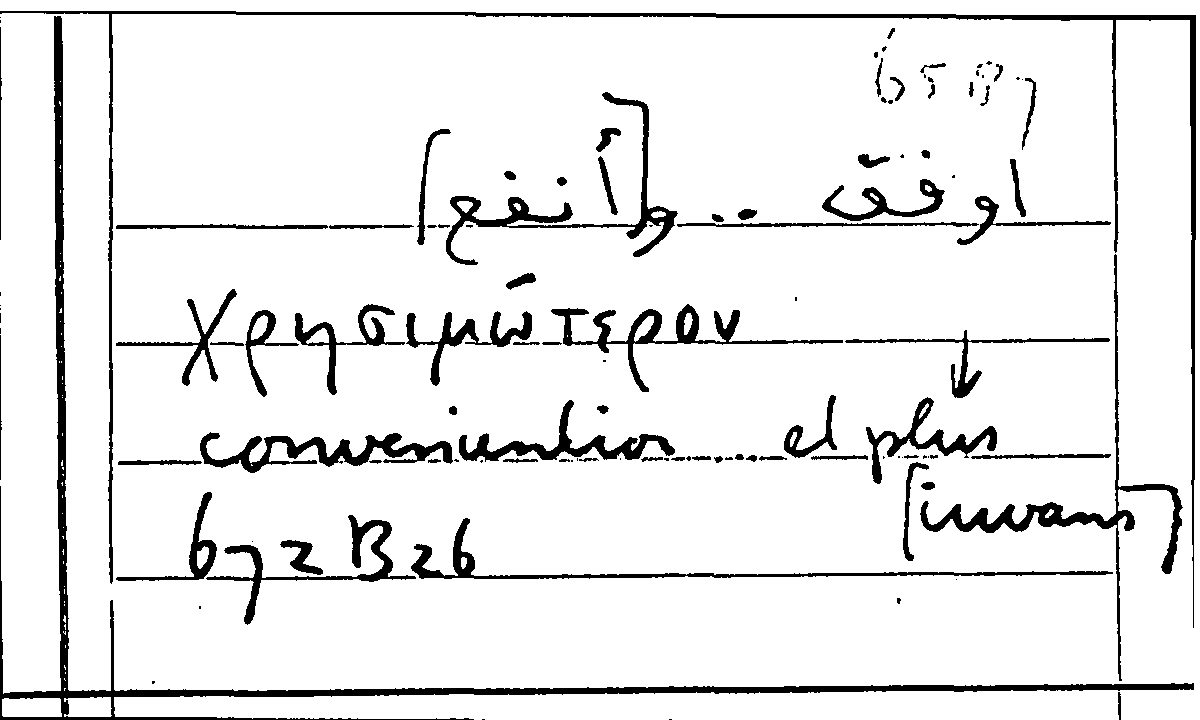 اوفق .. و[أنفع]
χρησιμώτερον
convenientior .. et plus
[iuvans]
672 B 26